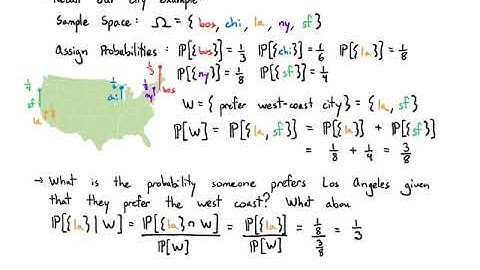 Recall our city example
Sample Space: Ω = { bos, chi, la, ny, sf }
Assign Probabilities: P[{bos}] = 1/3 P[{chi}] = 1/6 P[{la}] = 1/8
P[{ny}] = 1/8 P[{sf}] = 1/4
1/4 sf
la 1/8
1/6 chi
1/3 bos
ny
W = { prefer west-coast city } = { la, sf }
P[W] = P[{la, sf}] = P[{la}] + P[{sf}]
= 1/8 + 1/4 = 3/8
→ What is the probability someone prefers Los Angeles given
that they prefer the west coast? What abou
P[{la} | W] = P[{la} ∩ W] / P[W] = P[{la}] / P[W] = 1/8 / 3/8 = 1/3